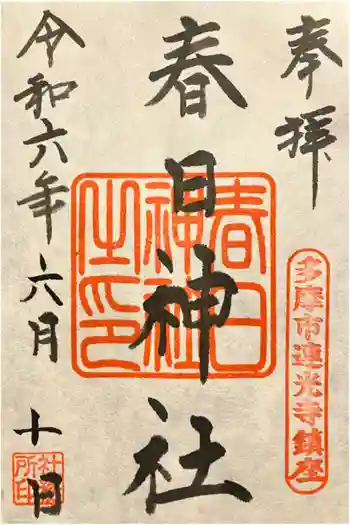 奉拝
多摩市連光寺鎮座
春日神社
春日神社之印
令和六年六月十日